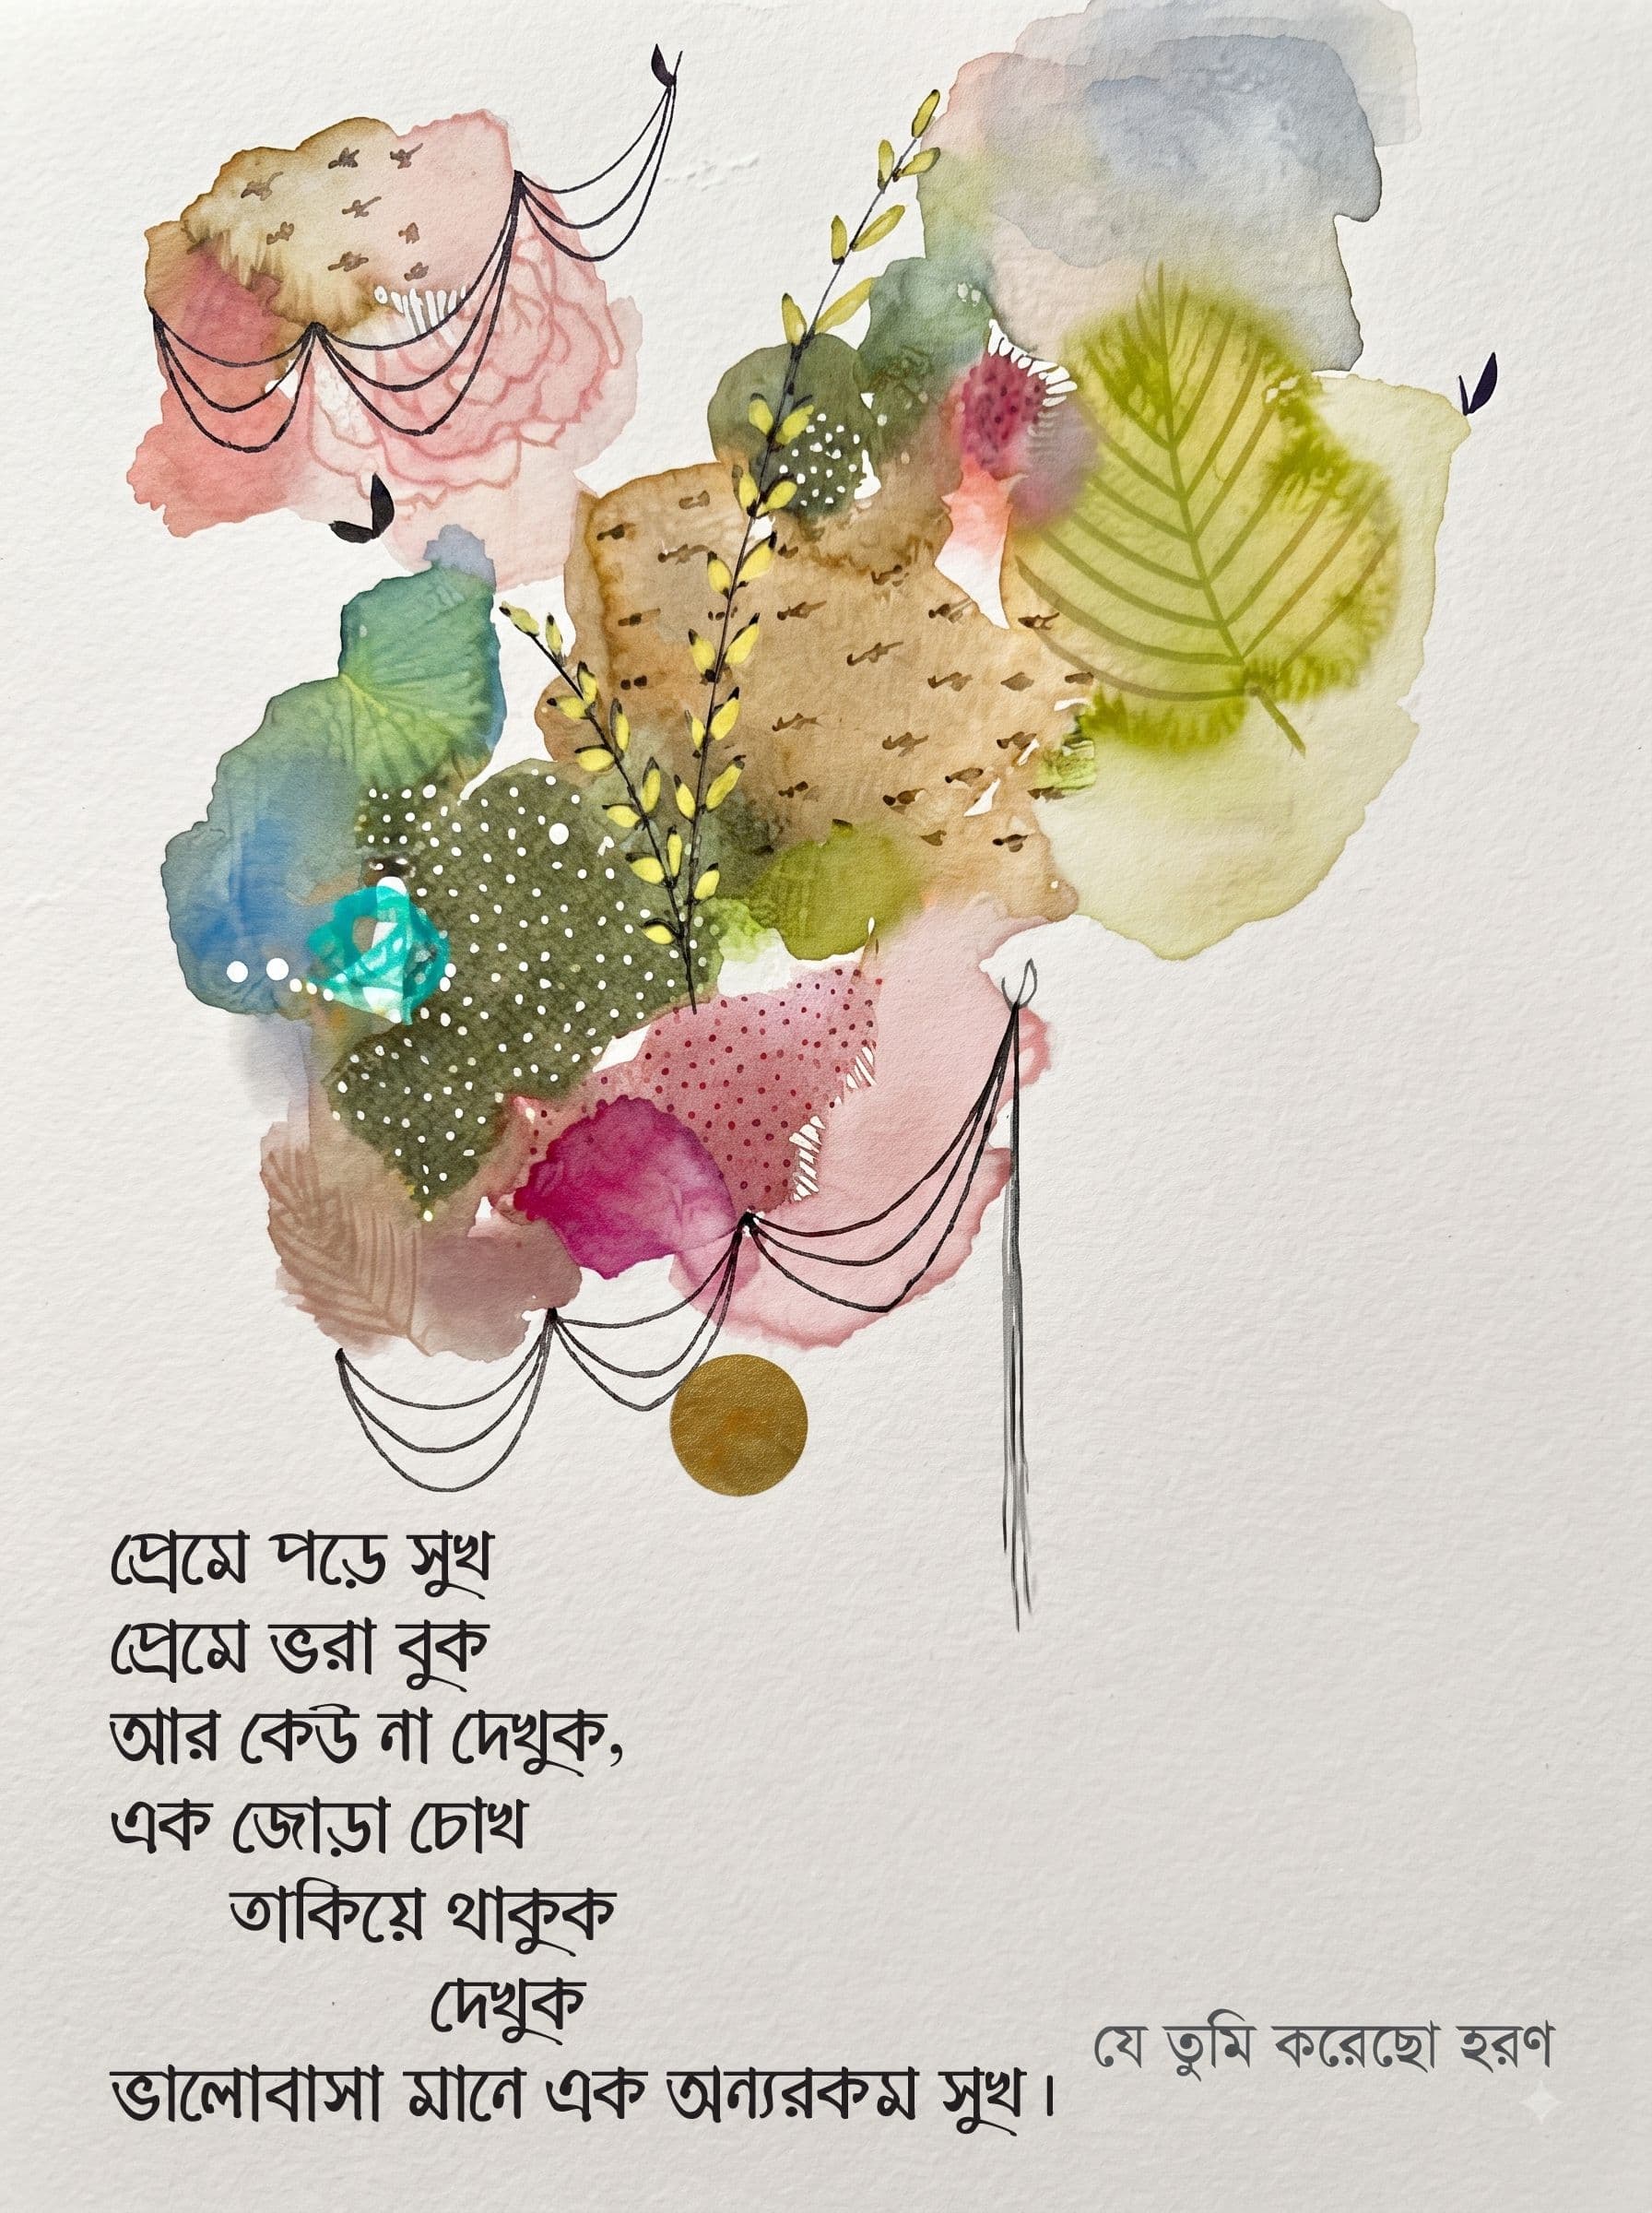 প্রেমে পড়ে সুখ
প্রেমে ভরা বুক
আর কেউ না দেখুক,
এক জোড়া চোখ
তাকিয়ে থাকুক
দেখুক
ভালোবাসা মানে এক অন্যরকম সুখ।
যে তুমি করেছো হরণ